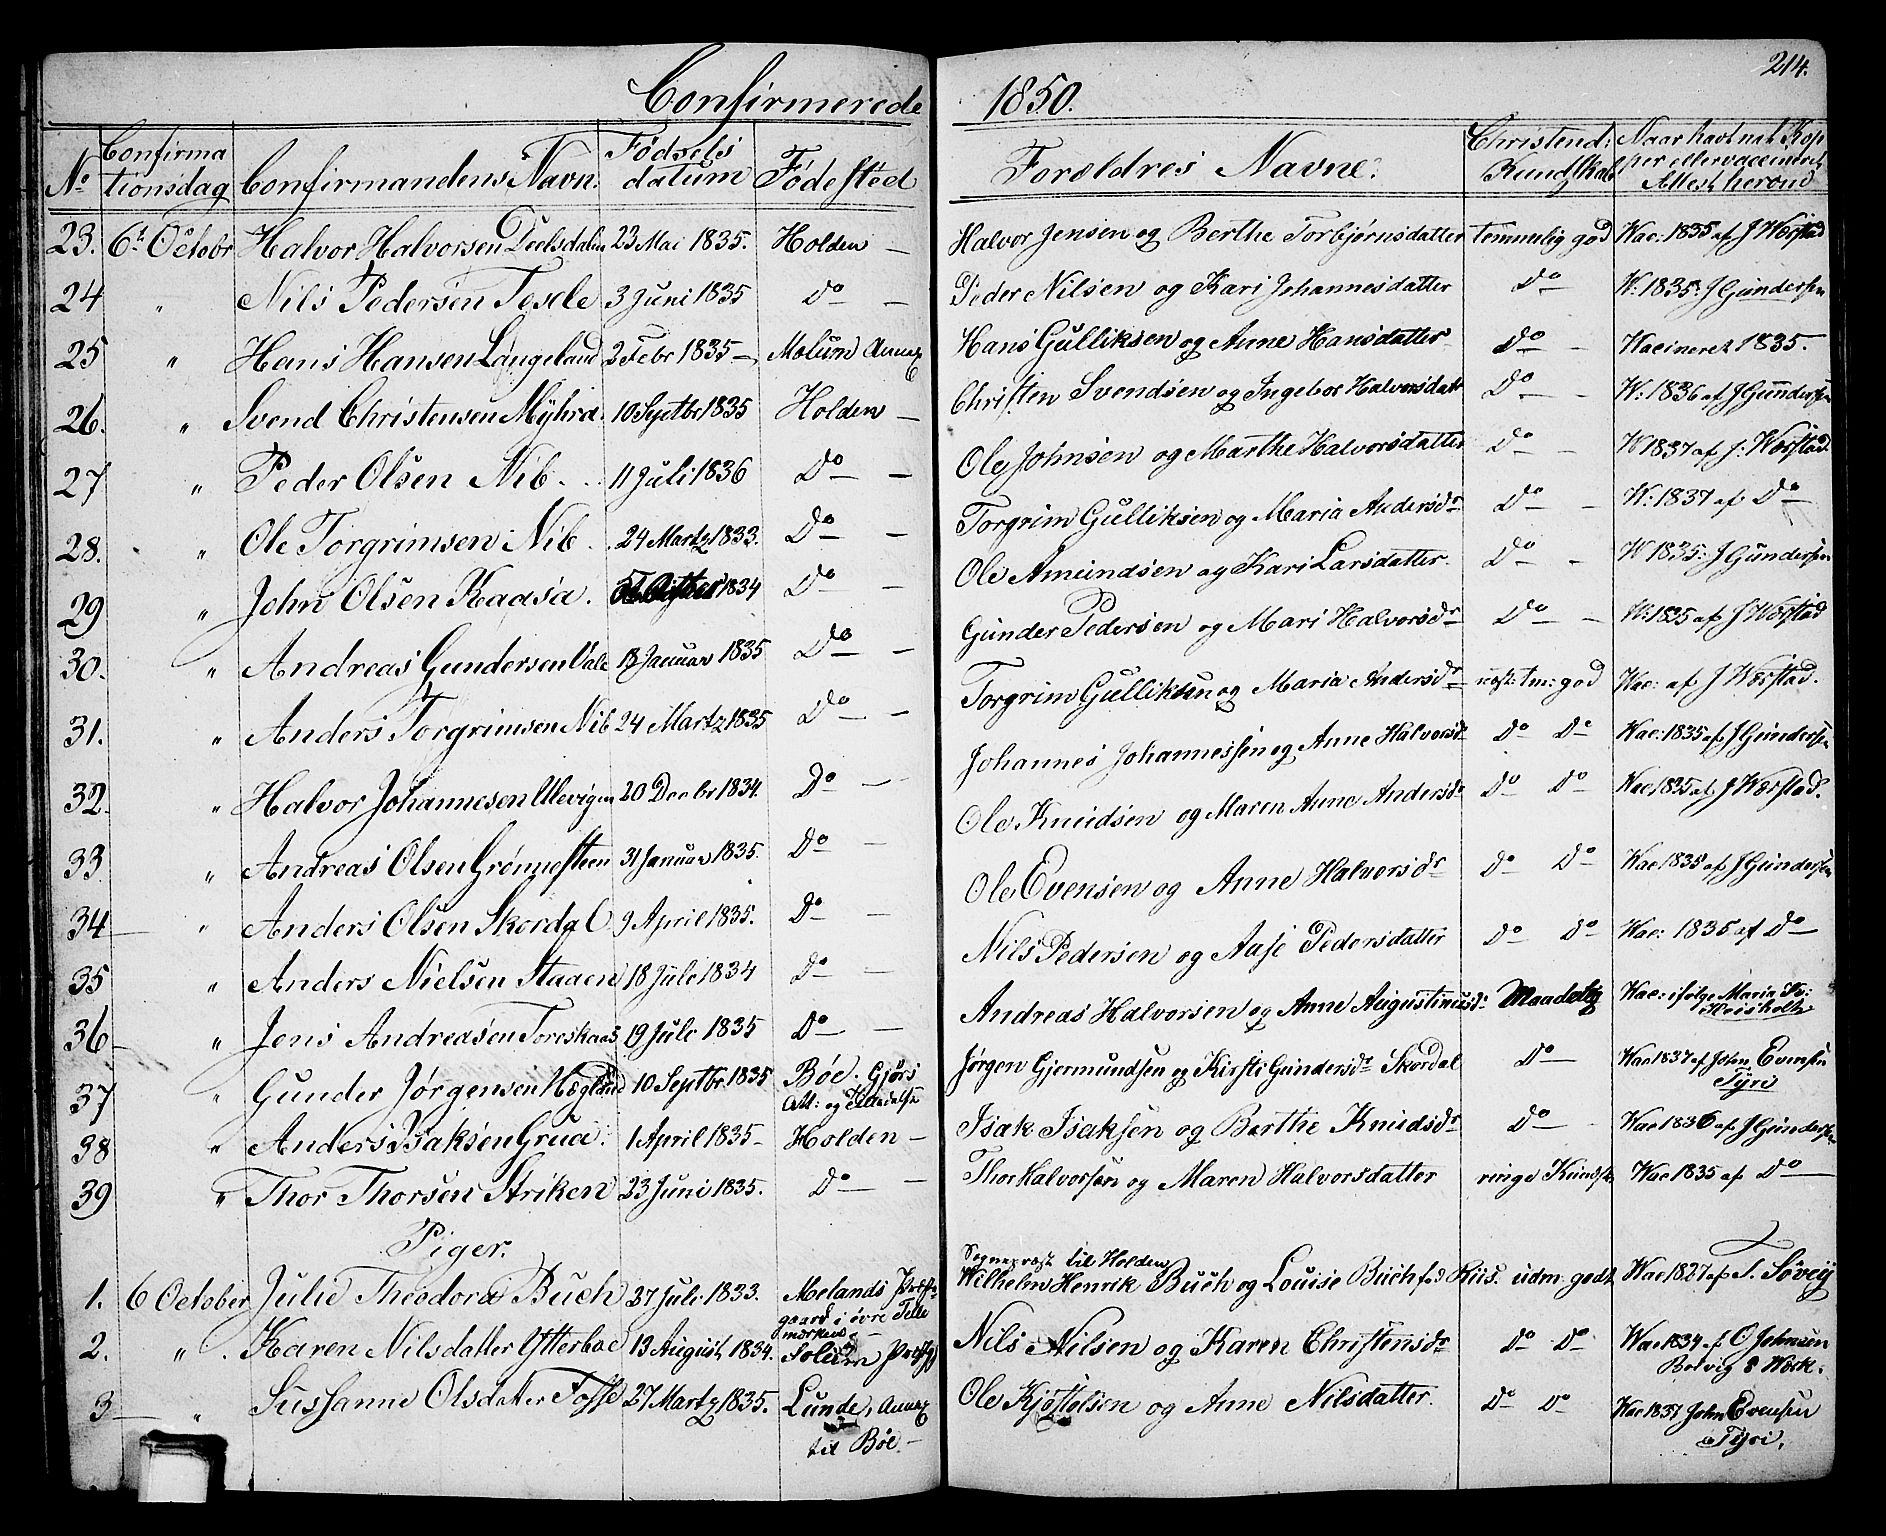 214.
Confirmerede 1850.
No Confirmationsdag Confirmandens Navn. Fødsels datum Fødested Forældres Navne: Christend: Kundskab Naar havt nat. Kopper eller vaccineret Attest herom
23. 6t October Halvor Halvorsen Deelsdalen 23 Mai 1835. Holden — Halvor Jensen og Berthe Torbjørnsdatter temmelig god Vac: 1835 af J Wærstad
24 " Nils Pedersen Tesele 3 Juni 1835 Do — Peder Nilsen og Kari Johannesdatter Do W: 1835: J Gundersen
25 " Hans Hansen Langeland 2 Febr 1835 — Melum Annex Hans Gulliksen og Anne Hansdatter Do — Vacineret 1835.
26. " Svend Christensen Myhra 10 Septbr 1835 Holden — Christen Svendsen og Ingebor Halvorsdatr Do — W: 1836 af J Gundersen
27 " Peder Olsen Nib. 11 Juli 1836 Do — Ole Johnsen og Marthe Halvorsdatter Do — W 1837 af J: Wærstad
28. " Ole Torgrimsen Nib. 24 Martz 1833. Do — Torgrim Gulliksen og Maria Andersdr Do — W: 1837 af Do
29 " John Olsen Kaasa. 1834 Do — Ole Amundsen og Kari Larsdatter. Do — W 1835: J Gundersen
30. " Andreas Gundersen Vale 18 Januar 1835 Do — Gunder Pedersen og Mari Halvorsdr Do — W: 1835 af J Wærstad
31. " Anders Torgrimsen Nib 24 Martz 1835 Do — Torgrim Gulliksen og Maria Andersdr næst: tm: god Vac: af J Wærstad.
32 " Halvor Johannesen Ulevigen 20 Decbr 1834. Do — Johannes Johannessen og Anne Halvorsdr Do Do Vac: 1835 af J Gundersen
33 " Andreas Olsen Grønnesteen 31 Januar 1835. Do — Ole Knudsen og Maren Anne Andersdr Do Do Vac 1835 af J Wærstad.
34 " Anders Olsen Skordal 9 April 1835. Do — Ole Evensen og Anne Halvorsdr Do Do Vac 1835 af J Gundersen
35 " Anders Nielsen Staaen 18 Jule 1834 Do — Nils Pedersen og Aase Pedersdatter Do Do Vac: 1835 af Do
36 " Jens Andreasen Toreskaas 19 Jule 1835 Do — Andreas Halvorsen og Anne Augustinusdr Maadelig Vac: ifølge Maria To: Heisholt
37 " Gunder Jørgensen Hægland 10 Septbr 1835 Bøe. Gjørs Att: og Jørgen Gjermundsen og Kirsti Gundersdr Skordal Do — Vac 1837 af John Evensen Tyri
38 " Anders Isaksen Grua. 1 April 1835 — Holden — Isak Isaksen og Berthe Knudsdr Do — Vac 1836 af J Gundersen
39 " Thor Thorsen Striken 23 Juni 1835. Do — Thor Halvorsen og Maren Halvorsdatter ringe Kundsk Vac 1835 af Do
Piger.
1. 6 October Julie Theodora Buch 27 Juli 1833. Melands Præstegaard i øvre Tellemarken Sogneprest til Holden Wilhelm Henrik Buch og Louise Buch fød Riis. udm. godt Vac 1827 af T. Søvig
2. " Karen Nilsdatter Ytterboe 13 August 1834. Solum Præstg Nils Nilsen og Karen Christensdr Do Do Vac 1834 af O Johnsen Bolvig s Værk.
3 " Sussanne Olsdatter Fosse 27 Martz 1835. Lunde, Annex til Bøe. Ole Kjøstolsen og Anne Nilsdatter. Do Do Vac 1837 John Evensen Tyri.